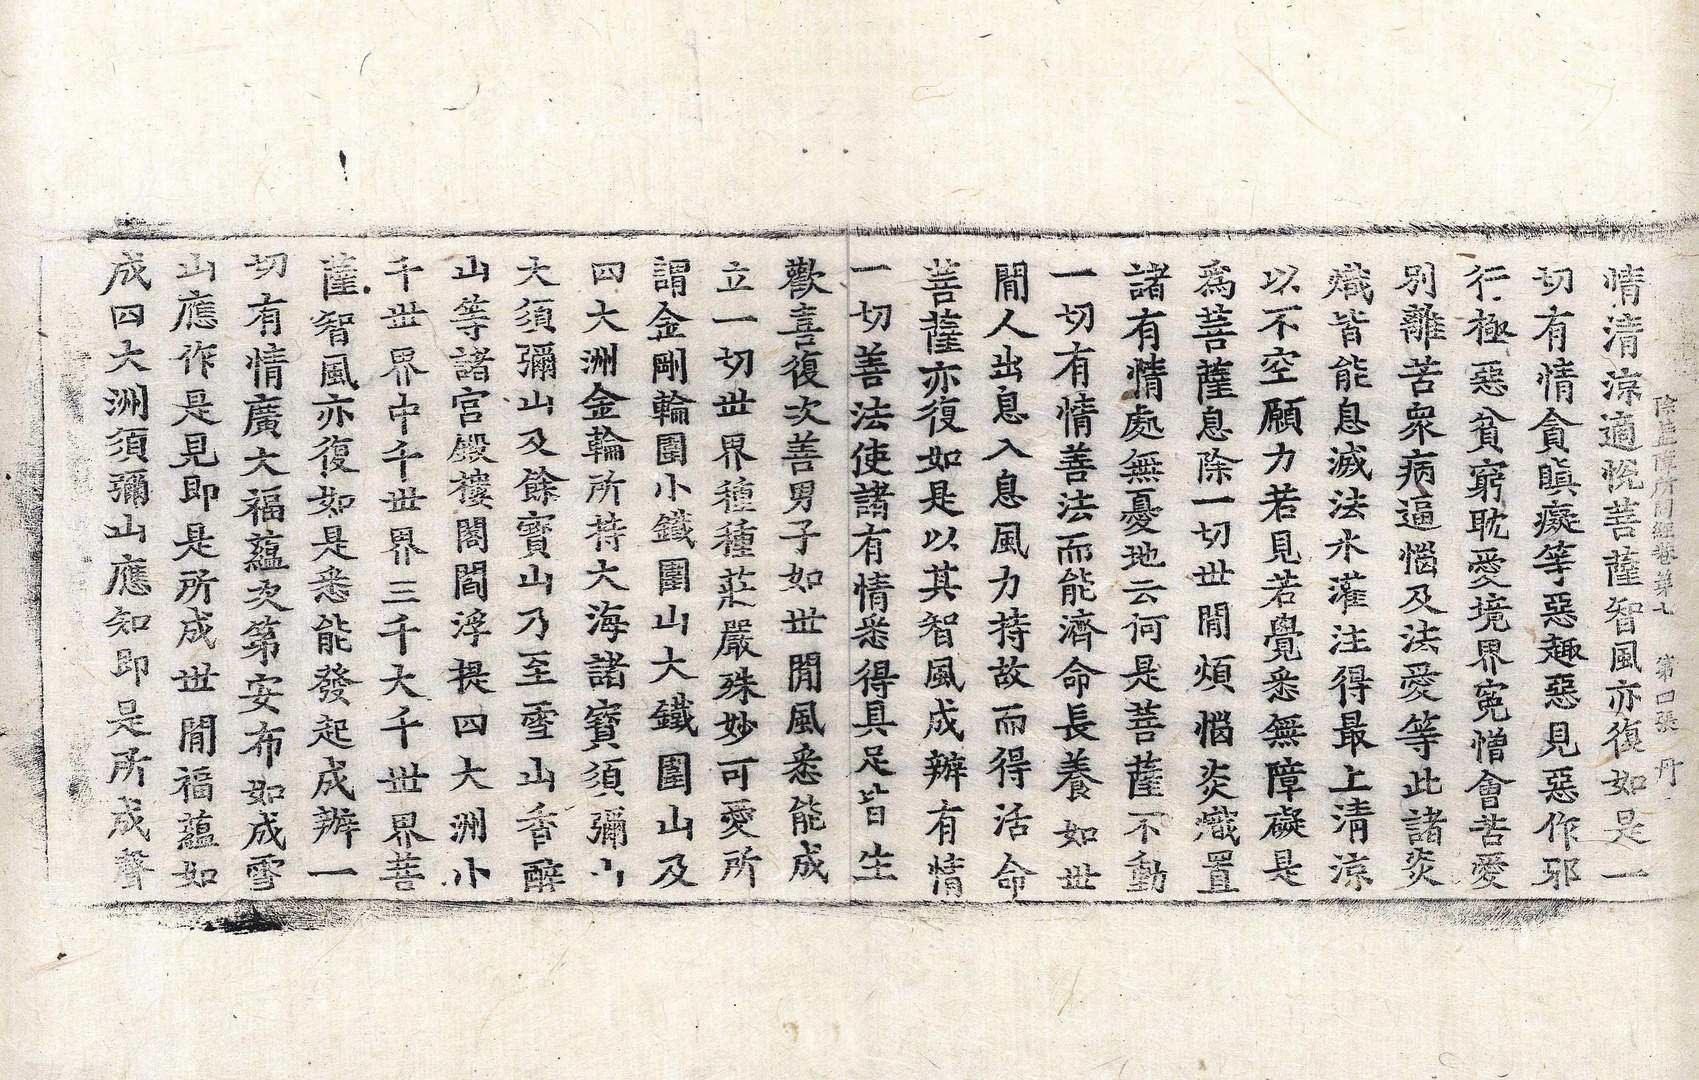 除蓋障所問經卷第七　第四張　丹
情清涼適悅菩薩智風亦復如是一
切有情貪瞋癡等惡趣惡見惡作邪
行極惡貧窮耽愛境界寃憎會苦愛
別離苦衆病逼惱及法愛等此諸炎
熾皆能息滅法水灌注得最上清涼
以不空願力若見若覺悉無障礙是
爲菩薩息除一切世閒煩惱炎熾置
諸有情處無憂地云何是菩薩不動
一切有情善法而能濟命長養如世
閒人出息入息風力持故而得活命
菩薩亦復如是以其智風成辦有情
一切善法使諸有情悉得具足皆生
歡喜復次善男子如世閒風悉能成
立一切世界種種莊嚴殊妙可愛所
謂金剛輪圍小鐵圍山大鐵圍山及
四大洲金輪所持大海諸寶須彌山
大須彌山及餘寶山乃至雪山香醉
山等諸宮殿樓閣閻浮提四大洲小
千世界中千世界三千大千世界菩
薩智風亦復如是悉能發起成辦一
切有情廣大福蘊次第安布如成雪
山應作是見即是所成世閒福蘊如
成四大洲須彌山應知即是所成聲